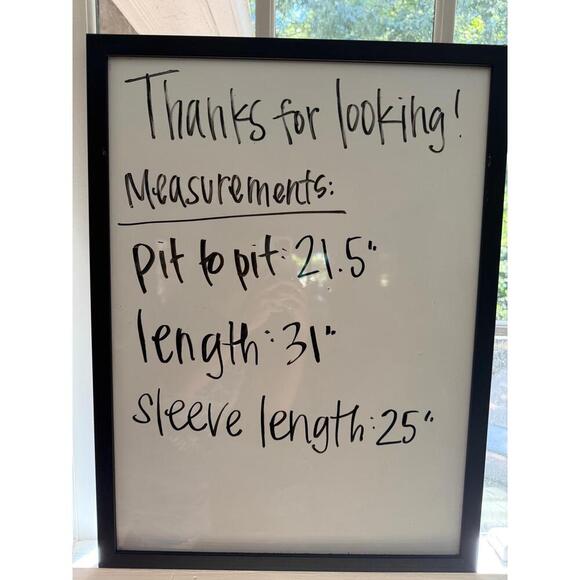 Thanks for looking!
Measurements:
pit to pit: 21.5"
length: 31"
sleeve length: 25"